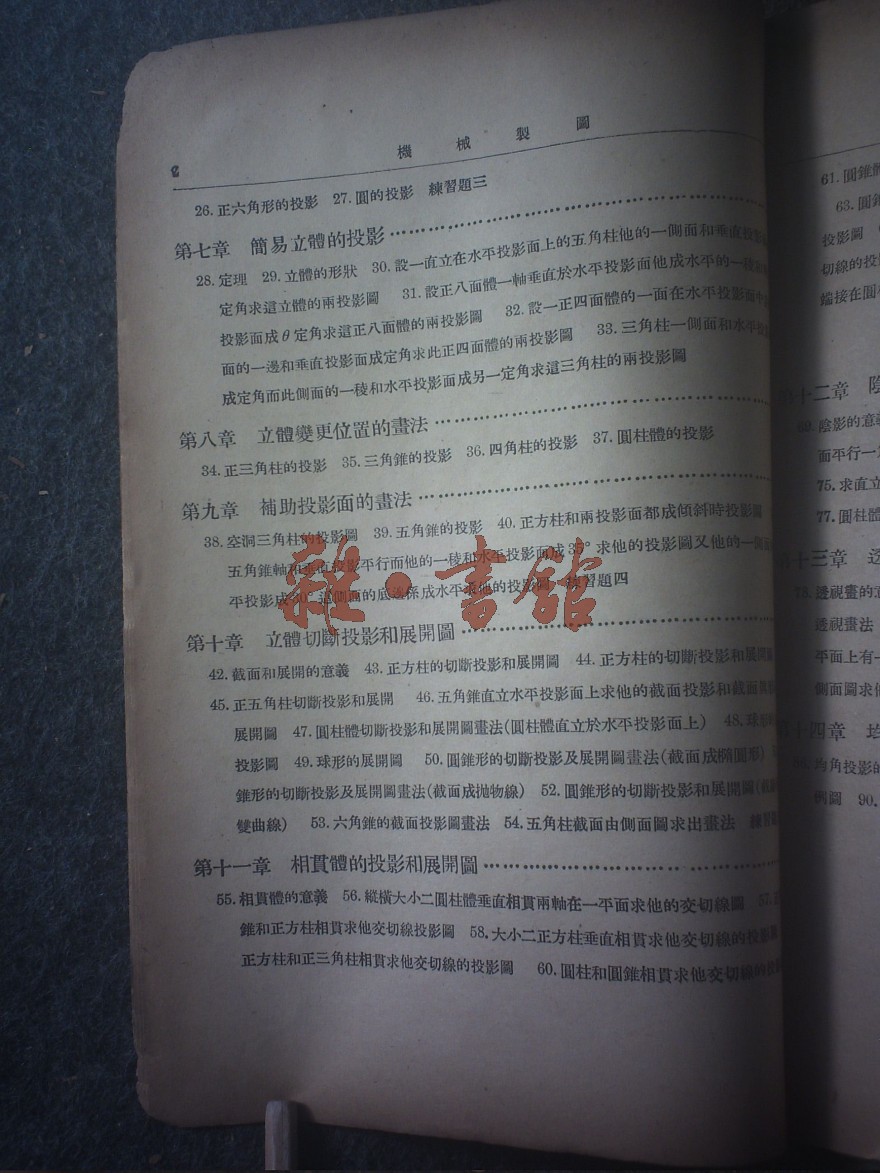 2
機械製圖
26. 正六角形的投影 27. 圓的投影 練習題三
第七章 簡易立體的投影
28. 定理 29. 立體的形狀 30. 設一直立在水平投影面上的五角柱他的一側面和垂直投影
定角求這立體的兩投影圖 31. 設正八面體一軸垂直於水平投影面他成水平的一稜
投影面成θ定角求這正八面體的兩投影圖 32. 設一正四面體的一面在水平投影面中
面的一邊和垂直投影面成定角求此正四面體的兩投影圖 33. 三角柱一側面和水平
成定角而此側面的一稜和水平投影面成另一定角求這三角柱的兩投影圖
第八章 立體變更位置的畫法
34. 正三角柱的投影 35. 三角錐的投影 36. 四角柱的投影 37. 圓柱體的投影
第九章 補助投影面的畫法
38. 空洞三角柱的投影圖 39. 五角錐的投影 40. 正方柱和兩投影面都成傾斜時投影圖
五角錐軸和垂直投影平行而他的一稜和水平投影面成35°求他的投影圖又他的一側
平投影成30°這側面的底邊係成水平求他的投影圖 練習題四
第十章 立體切斷投影和展開圖
42. 截面和展開的意義 43. 正方柱的切斷投影和展開圖 44. 正方柱的切斷投影和展開
45. 正五角柱切斷投影和展開 46. 五角錐直立水平投影面上求他的截面投影和截面
展開圖 47. 圓柱體切斷投影和展開圖畫法(圓柱體直立於水平投影面上) 48. 球形
投影圖 49. 球形的展開圖 50. 圓錐形的切斷投影及展開圖畫法(截面成橢圓形)
錐形的切斷投影及展開圖畫法(截面成拋物線) 52. 圓錐形的切斷投影和展開圖(
雙曲線) 53. 六角錐的截面投影圖畫法 54. 五角柱截面由側面圖求出畫法 練習
第十一章 相貫體的投影和展開圖
55. 相貫體的意義 56. 縱橫大小二圓柱體垂直相貫兩軸在一平面求他的交切線圖 57.
錐和正方柱相貫求他交切線投影圖 58. 大小二正方柱垂直相貫求他交切線的投影
正方柱和正三角柱相貫求他交切線的投影圖 60. 圓柱和圓錐相貫求他交切線的投
雜·書館
61. 圓錐體
63. 圓
投影圖
切線的投
接在圓
十二章 陰
陰影的意
面平行一
75. 求直立
77. 圓柱體
十三章 透
透視畫的意
透視畫法
平面上有一
側面圖求他
十四章 均
均角投影的
例圖 90.